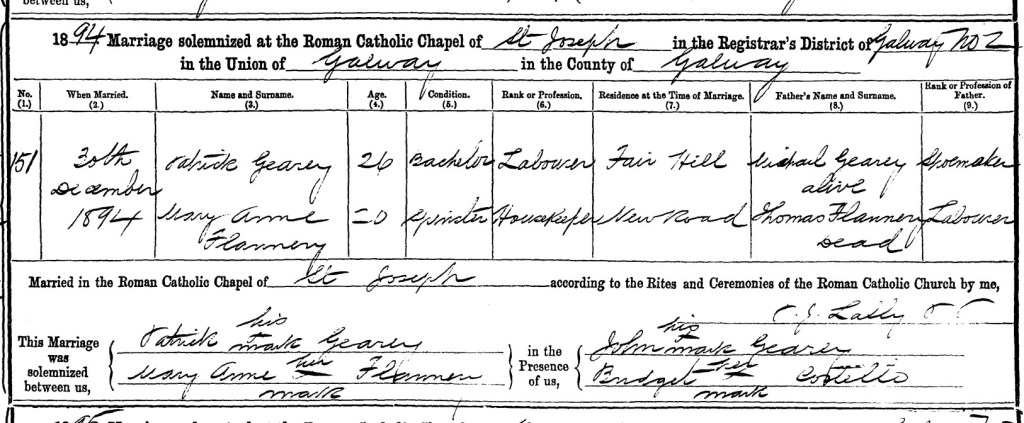 between us,
1894 Marriage solemnized at the Roman Catholic Chapel of St Joseph in the Registrar's District of Galway No 2
in the Union of Galway in the County of Galway
No. (1.) When Married. (2.) Name and Surname. (3.) Age. (4.) Condition. (5.) Rank or Profession. (6.) Residence at the Time of Marriage. (7.) Father's Name and Surname. (8.) Rank or Profession of Father. (9.)
151 30th Patrick Gearey 26 Bachelor Labourer Fair Hill Michael Gearey Shoemaker
December alive
1894 Mary Anne 20 Spinster Housekeeper New Road Thomas Flannery Labourer
Flannery Dead
Married in the Roman Catholic Chapel of St Joseph according to the Rites and Ceremonies of the Roman Catholic Church by me,
Lally
This Marriage was solemnized between us,
Patrick his mark Gearey
Mary Anne her mark Flannery
in the Presence of us,
John his mark Gearey
Bridget her mark Costello